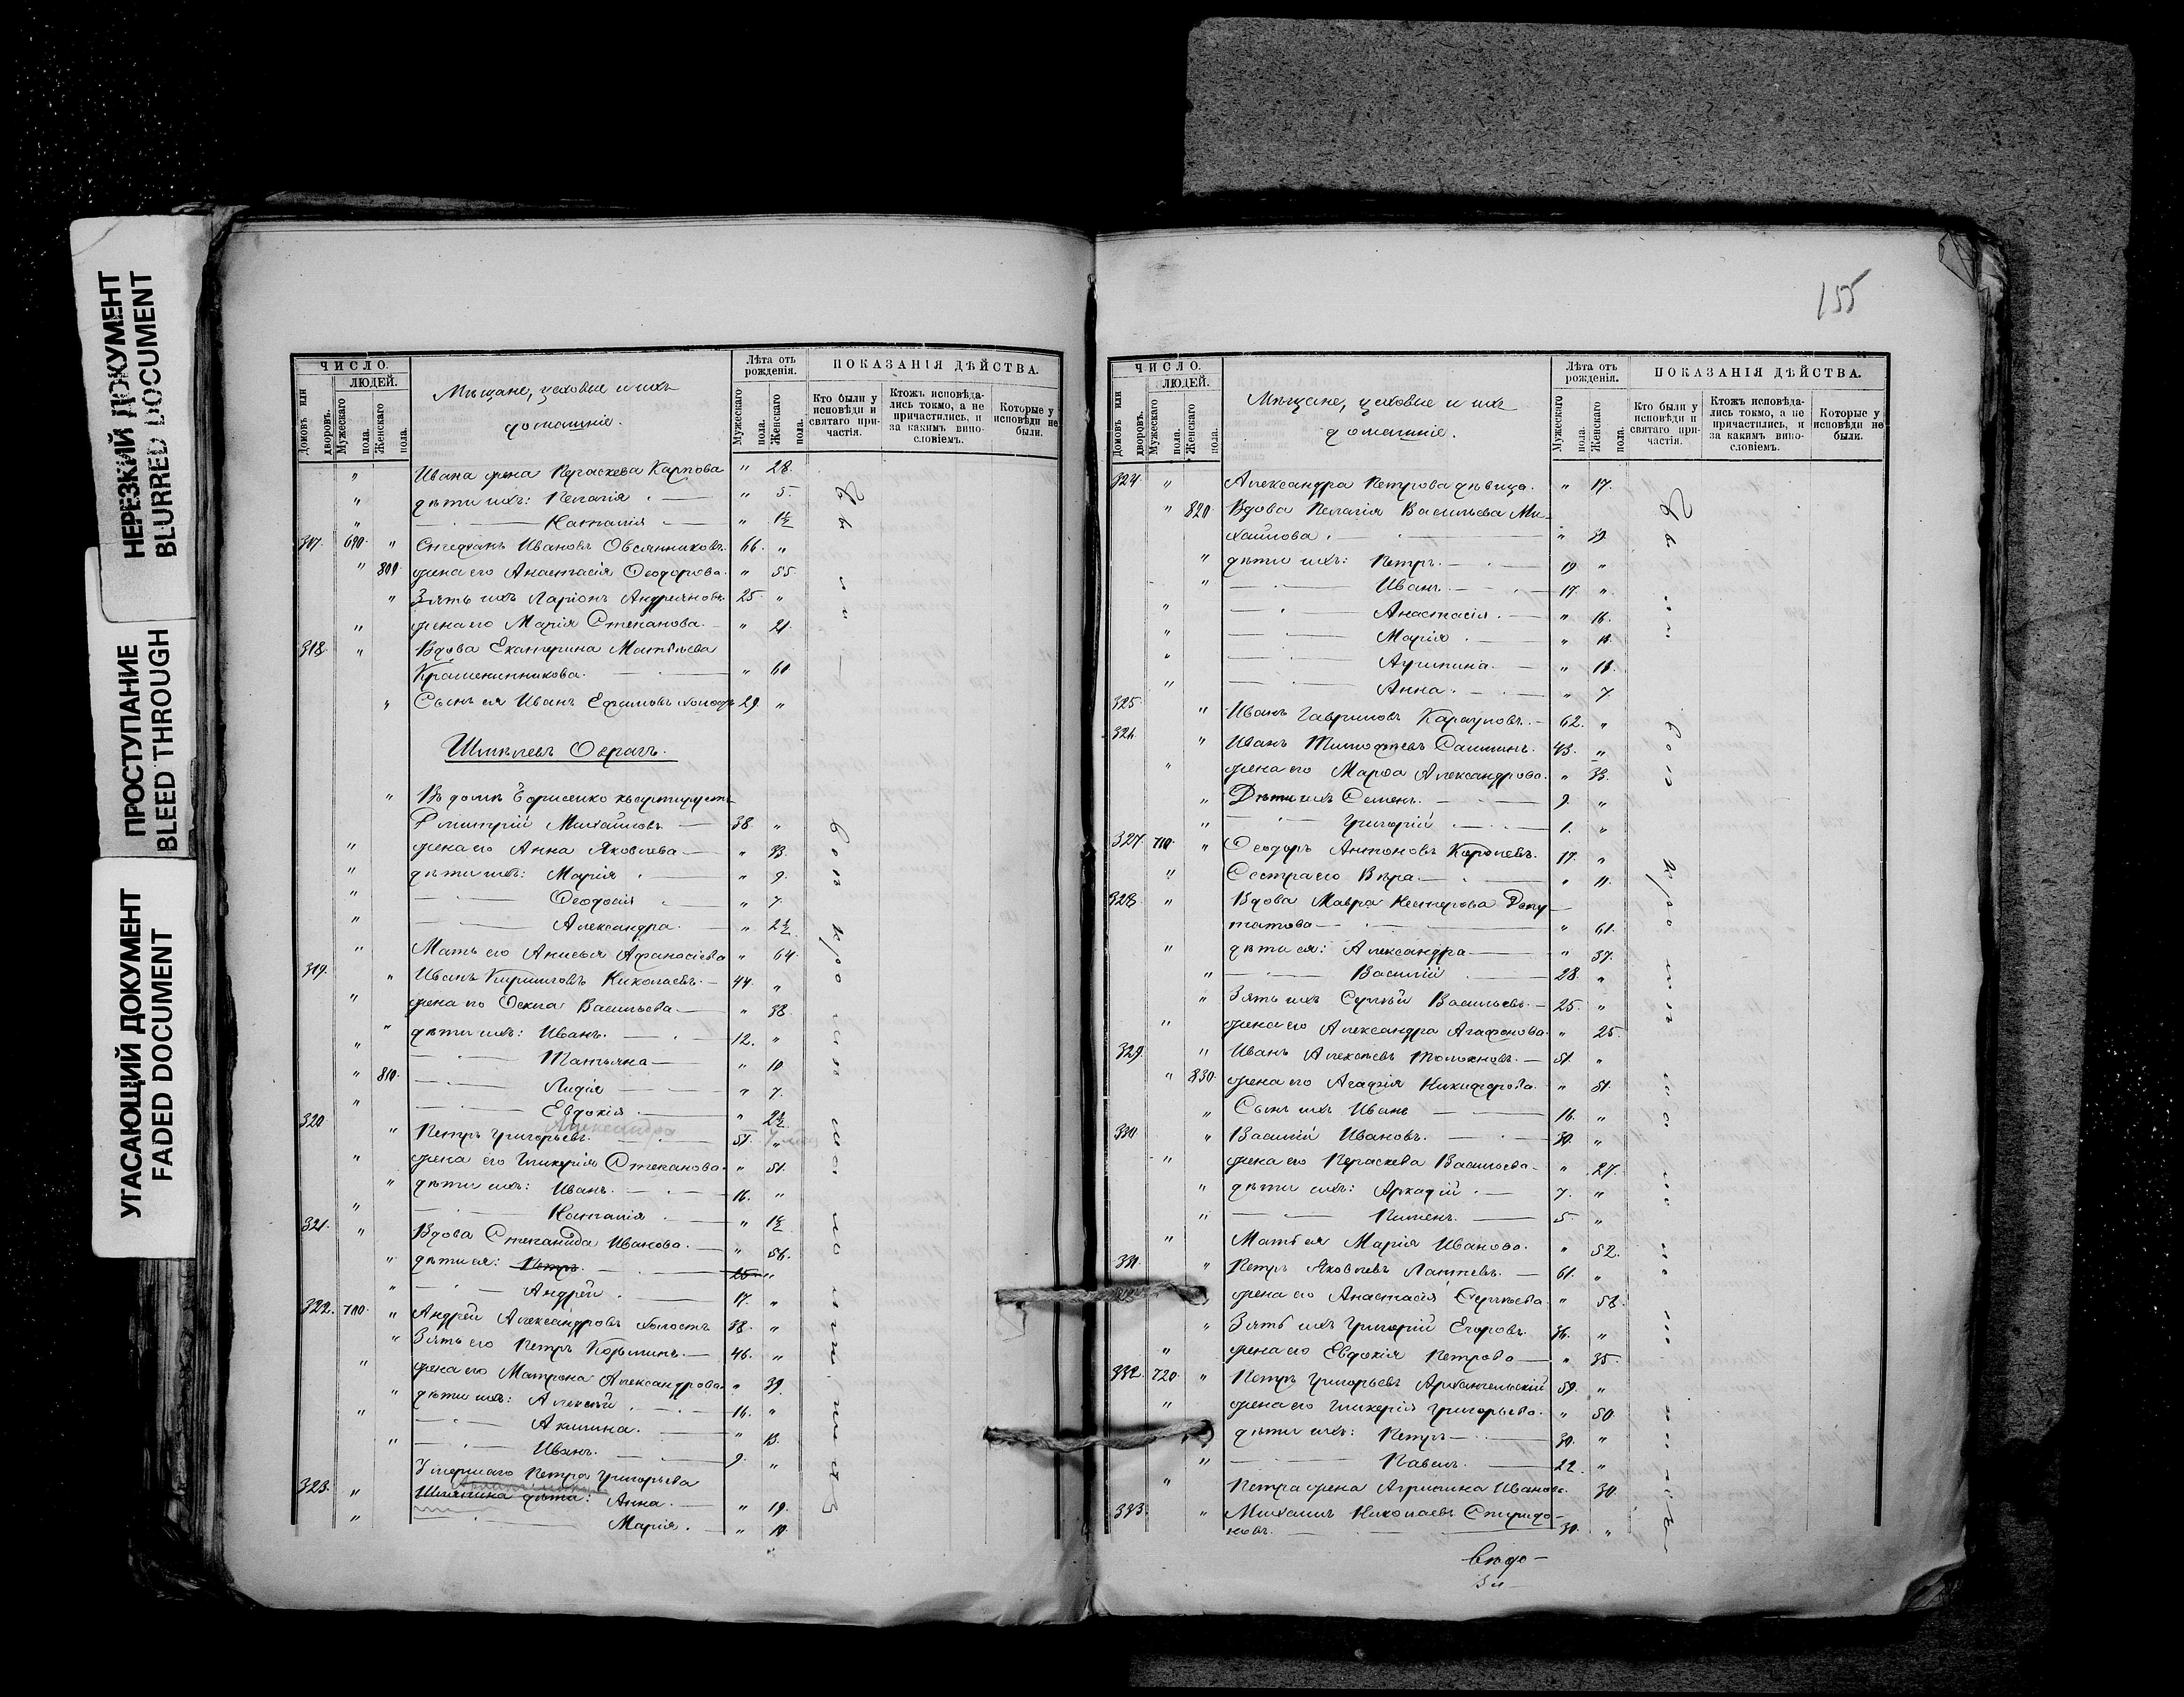 НЕРЕЗКИЙ ДОКУМЕНТ
BLURRED DOCUMENT
ПРОСТУПАНИЕ
BLEED THROUGH
УГАСАЮЩИЙ ДОКУМЕНТ
FADED DOCUMENT
ЧИСЛО.
ЛЮДЕЙ.
Домовъ или дворовъ.
Мужескаго пола.
Женскаго пола.
Мѣщане, цеховые и ихъ
домашніе.
Лѣта отъ рожденія.
Мужескаго пола.
Женскаго пола.
ПОКАЗАНІЯ ДѢЙСТВА.
Кто были у исповѣди и святаго причастія.
Ктожъ исповѣдались токмо, а не причастились, и за какимъ винословіемъ.
Которые у исповѣди не были.
" Ивана жена Параскева Карпова " 28.
" дѣти ихъ: Пелагія " 5.
" Наталія " 1½
317. 690. " Стефанъ Ивановъ Овсянниковъ. 66. "
" 801. жена его Анастасія Ѳеодорова. " 55.
" Зять ихъ Ларіонъ Андреяновъ 25. "
" жена его Марія Степанова. " 21.
318. " Вдова Екатерина Матвѣева
Крашенинникова. " 61
" Сынъ ея Иванъ Ефимовъ холостъ 29. "
Оврагъ.
" Въ домѣ Борисенко квартируетъ
Дмитрій Михайловъ 38. "
" жена его Анна Яковлева " 33.
" дѣти ихъ: Марія " 9.
" Ѳеодосія " 7.
" Александра " 2½
" Мать его Анисья Афанасіева " 64.
319. " Иванъ Кирилловъ Николаевъ. 44. "
" жена его Ѳекла Васильева " 38.
" дѣти ихъ: Иванъ. 12. "
" Татьяна " 10
" 810. Лидія " 7.
" Евдокія " 2½
Александра
320 " Петръ Григорьевъ. 51. "
" жена его Гликерія Степанова. " 51.
" дѣти ихъ: Иванъ. 16. "
" Наталія " 1½
321. " Вдова Степанида Иванова. " 56.
" дѣти ея: Петръ. 25 "
" Андрей 17. "
322. 700. " Андрей Александровъ холостъ 38. "
" Зять его Петръ Кузьминъ. 46. "
" жена его Матрона Александрова. " 39.
" дѣти ихъ: Алексѣй 16. "
" Акилина. " 13.
" Иванъ. 9. "
Умершаго Петра Григорьева
323. " дѣти: Анна. " 19.
" Марія. " 10.
155
ЧИСЛО.
ЛЮДЕЙ.
Домовъ или дворовъ.
Мужескаго пола.
Женскаго пола.
Мѣщане, цеховые и ихъ
домашніе.
Лѣта отъ рожденія.
Мужескаго пола.
Женскаго пола.
ПОКАЗАНІЯ ДѢЙСТВА.
Кто были у исповѣди и святаго причастія.
Ктожъ исповѣдались токмо, а не причастились, и за какимъ винословіемъ.
Которые у исповѣди не были.
324. " Александра Петрова дѣвица. " 17.
" 820. Вдова Пелагія Васильева Ми-
хайлова. " 39.
" дѣти ихъ: Петръ. 19. "
" Иванъ. 17. "
" Анастасія. " 16.
" Марія
" Агрипина. " 11.
" Анна. " 7.
325. " Иванъ Гавриловъ Карауловъ. 62. "
326. " Иванъ Тимофеевъ 43. "
" жена его Марѳа Александрова. " 33.
" Дѣти ихъ Семенъ. 9. "
" Григорій 1. "
327. 710. " Ѳеодоръ Антоновъ Королевъ. 17. "
" Сестра его Вѣра. " 11.
328. " Вдова Мавра Нестерова Депу-
татова " 61.
" дѣти ея: Александра " 37.
" Василій 28. "
" Зять ихъ Сергѣй Васильевъ. 25. "
" жена его Александра Агафонова. " 25
329. " Иванъ Алексѣевъ Толокновъ. 51. "
" 830. жена его Агафія Никифорова. " 51
" Сынъ ихъ Иванъ 16. "
330. " Василій Ивановъ. 30. "
" жена его Параскева Васильева. " 27.
" дѣти ихъ: Аркадій 7. "
" Пименъ. 5. "
" Мать ея Марія Иванова. " 52.
331. " Петръ Яковлевъ Лаптевъ. 61. "
жена его Анастасія Сергѣева. " 58.
" Зять ихъ Григорій Егоровъ. 36. "
" жена его Евдокія Петрова " 35.
332. 720. " Петръ Григорьевъ Архангельскій 59. "
" жена его Гликерія Григорьева. " 50.
дѣти ихъ: Петръ 30. "
" Павелъ. 22. "
" Петра жена Агрипина Иванова. 30.
333. " Михаилъ Николаевъ Спиридо-
новъ. 30. "